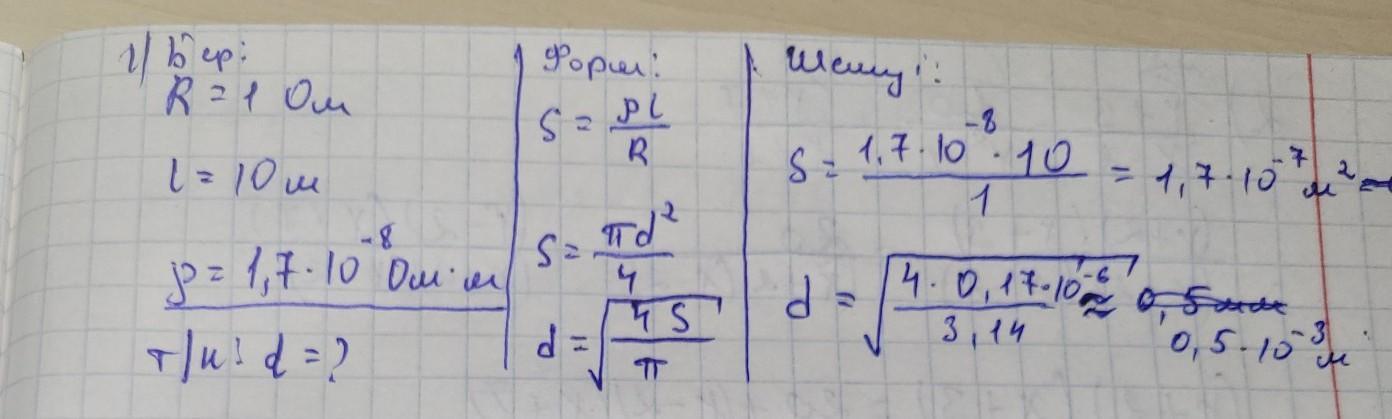 1) Бер:
R = 1 Ом
l = 10 м
ρ = 1,7 · 10⁻⁸ Ом · м
т/к: d = ?
Форм:
S = ρl / R
S = πd² / 4
d = √(4S / π)
Шешуі:
S = 1,7 · 10⁻⁸ · 10 / 1 = 1,7 · 10⁻⁷ м²
d = √(4 · 0,17 · 10⁻⁶ / 3,14) ≈ 0,5 мм
0,5 · 10⁻³ м